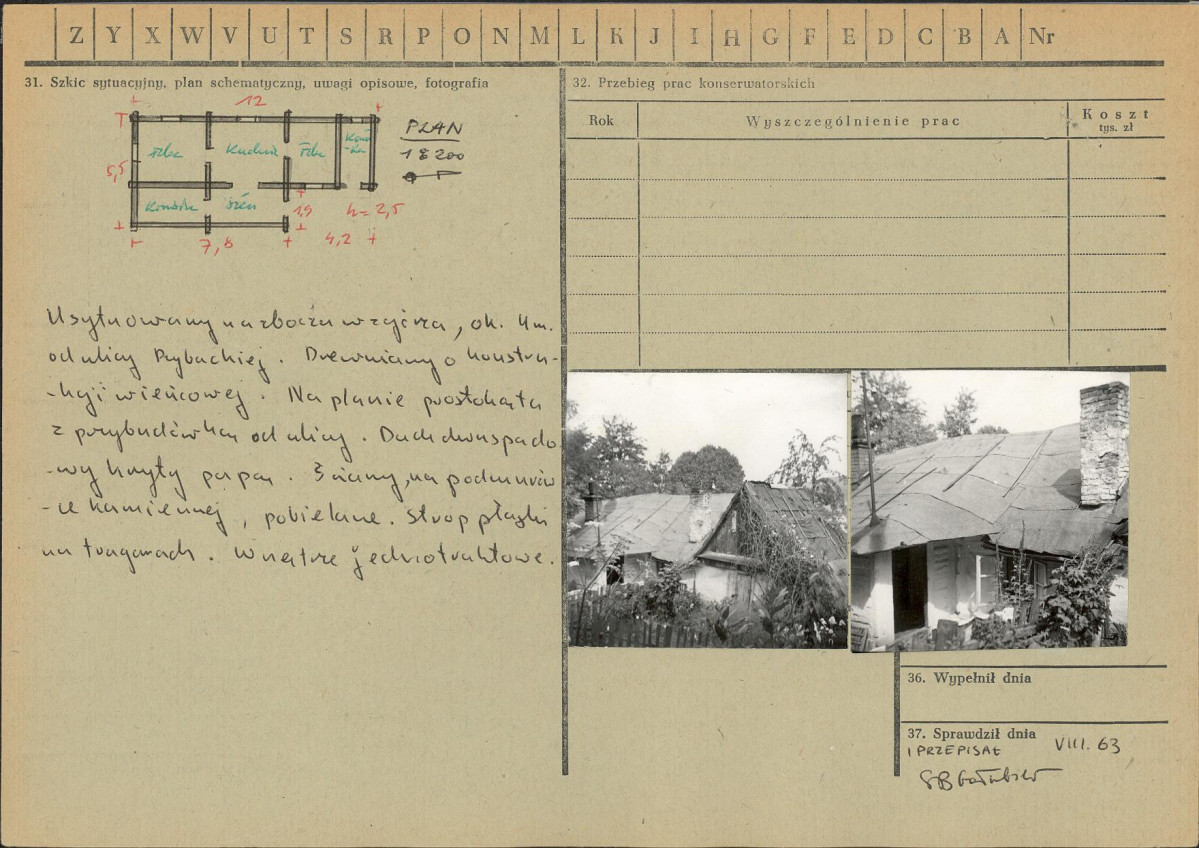 Z Y X W V U T S R P O N M L K J I H G F E D C B A Nr
31. Szkic sytuacyjny, plan schematyczny, uwagi opisowe, fotografia
12
5,5
izba
Kuchnia
izba
Komó
-ra
Komórka
sień
1,9
h = 2,5
7,8
4,2
PLAN
1:200
Usytuowany na zboczu wzgórza, ok. 4m.
od ulicy Rybackiej. Drewniany o konstru-
-kcji wieńcowej. Na planie prostokąta
z przybudówką od ulicy. Dach dwuspado
-wy kryty papą. Ściany, na podmurów
-ce kamiennej, pobielane. Strop płaski
na tragarzach. Wnętrze jednotraktowe.
32. Przebieg prac konserwatorskich
Rok
Wyszczególnienie prac
Koszt
tys. zł
36. Wypełnił dnia
37. Sprawdził dnia
I PRZEPISAŁ
VIII. 63